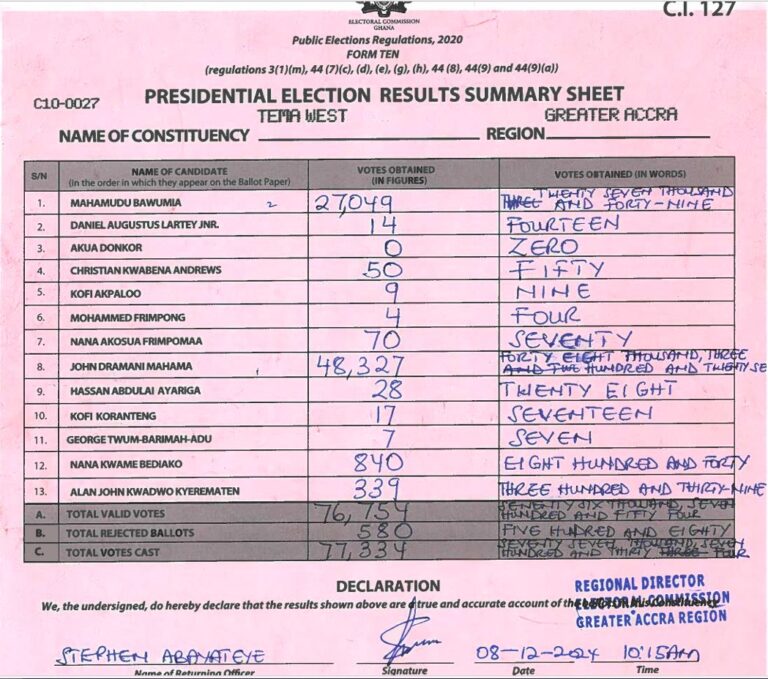 C.I. 127
ELECTORAL COMMISSION
GHANA
Public Elections Regulations, 2020
FORM TEN
(regulations 3(1)(m), 44 (7)(c), (d), (e), (g), (h), 44 (8), 44(9) and 44(9)(a))
C10-0027 PRESIDENTIAL ELECTION RESULTS SUMMARY SHEET
TEMA WEST GREATER ACCRA
NAME OF CONSTITUENCY REGION
S/N NAME OF CANDIDATE (In the order in which they appear on the Ballot Paper) VOTES OBTAINED (IN FIGURES) VOTES OBTAINED (IN WORDS)
1. MAHAMUDU BAWUMIA 2 27,049 TWENTY SEVEN THOUSAND
THREE AND FORTY-NINE
2. DANIEL AUGUSTUS LARTEY JNR. 14 FOURTEEN
3. AKUA DONKOR 0 ZERO
4. CHRISTIAN KWABENA ANDREWS 50 FIFTY
5. KOFI AKPALOO 9 NINE
6. MOHAMMED FRIMPONG 4 FOUR
7. NANA AKOSUA FRIMPOMAA 70 SEVENTY
8. JOHN DRAMANI MAHAMA 48,327 FORTY EIGHT THOUSAND, THREE
AND TWO HUNDRED AND TWENTY SE
9. HASSAN ABDULAI AYARIGA 28 TWENTY EIGHT
10. KOFI KORANTENG 17 SEVENTEEN
11. GEORGE TWUM-BARIMAH-ADU 7 SEVEN
12. NANA KWAME BEDIAKO 840 EIGHT HUNDRED AND FORTY
13. ALAN JOHN KWADWO KYEREMATEN 339 THREE HUNDRED AND THIRTY-NINE
A. TOTAL VALID VOTES 76,754 SEVENTY SIX THOUSAND, SEVEN
HUNDRED AND FIFTY FOUR
B. TOTAL REJECTED BALLOTS 580 FIVE HUNDRED AND EIGHTY
C. TOTAL VOTES CAST 77,334 SEVENTY SEVEN THOUSAND, SEVEN
HUNDRED AND THIRTY THREE FOUR
DECLARATION
We, the undersigned, do hereby declare that the results shown above are a true and accurate account of the
REGIONAL DIRECTOR
ELECTORAL COMMISSION
GREATER ACCRA REGION
STEPHEN ABAYATEYE 08-12-2024 10:15AM
Name of Returning Officer Signature Date Time